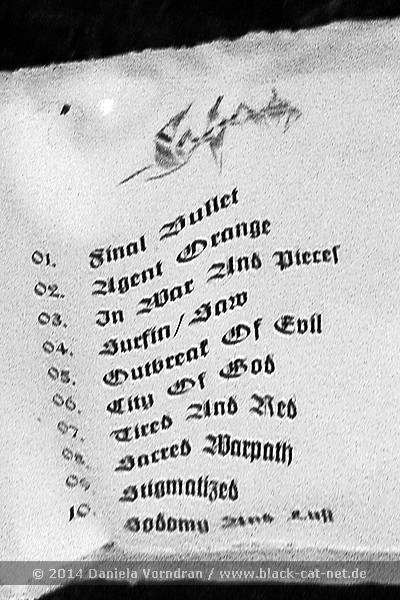 Sodom
01. Final Bullet
02. Agent Orange
03. In War And Pieces
04. Surfin/Saw
05. Outbreak Of Evil
06. City Of God
07. Tired And Red
08. Sacred Warpath
09. Stigmatized
10. Sodomy And Lust
© 2014 Daniela Vorndran / www.black-cat-net.de